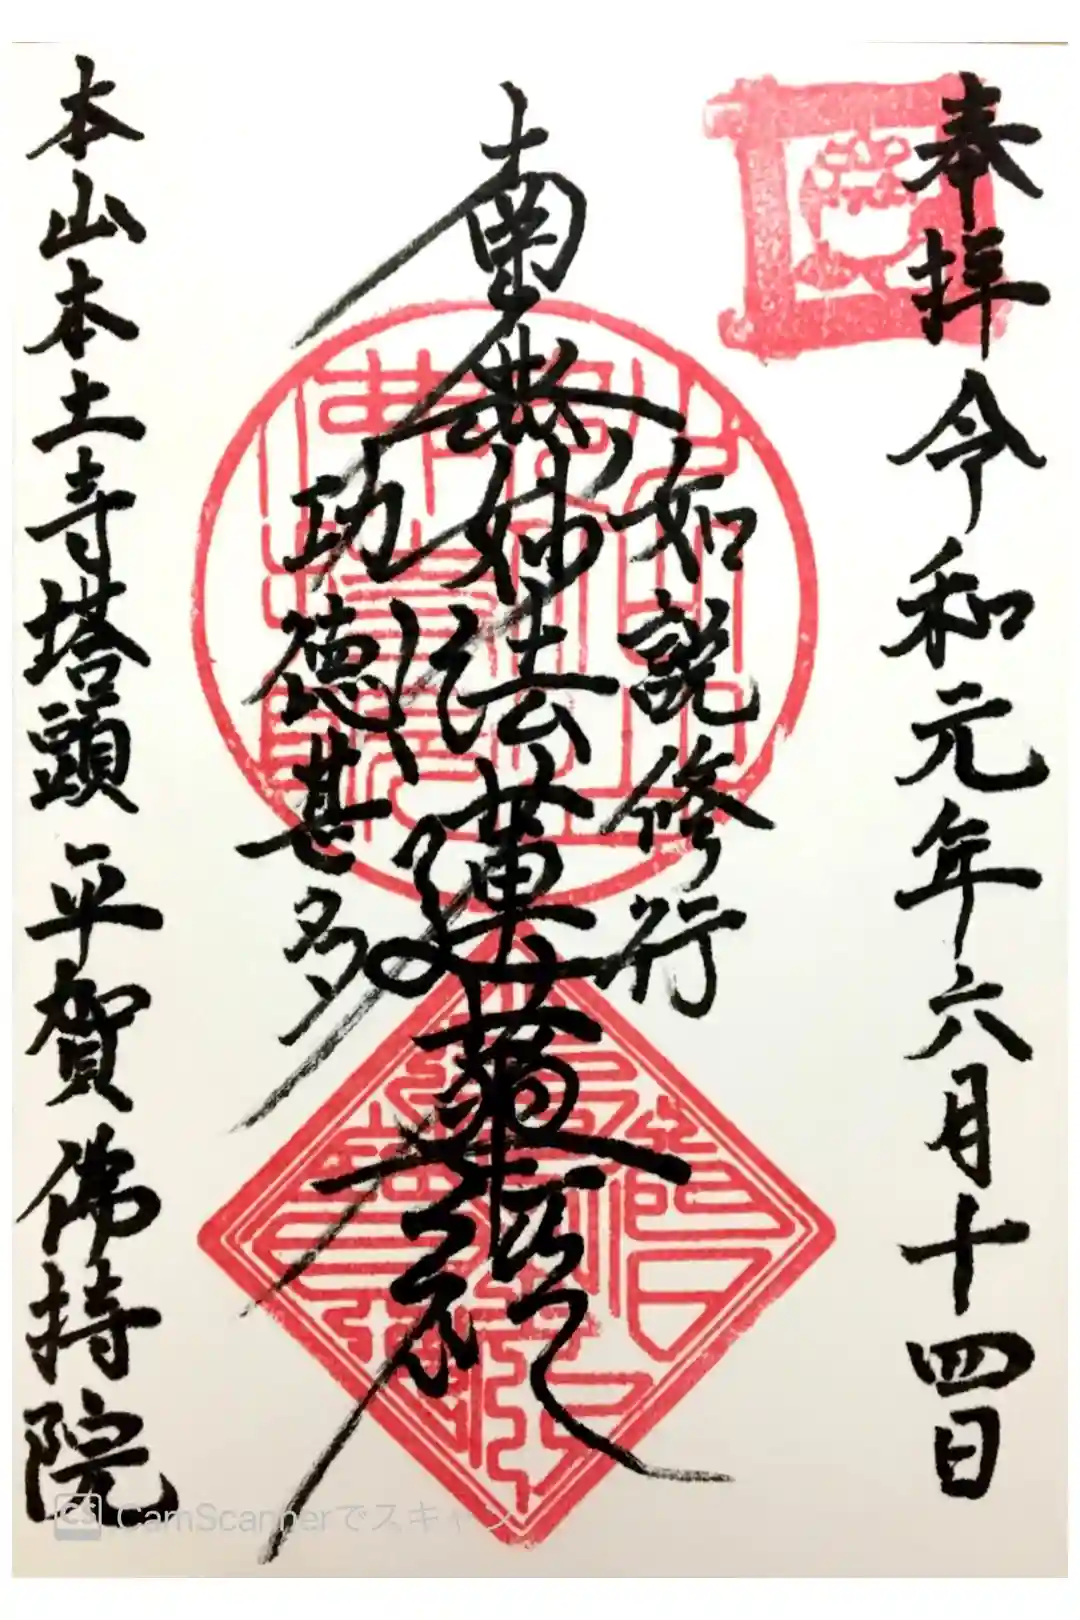 奉拝 令和元年六月十四日
如説修行
南無妙法蓮華経
功徳甚多
本山本土寺塔頭 平賀 佛持院
CS CamScannerでスキャン